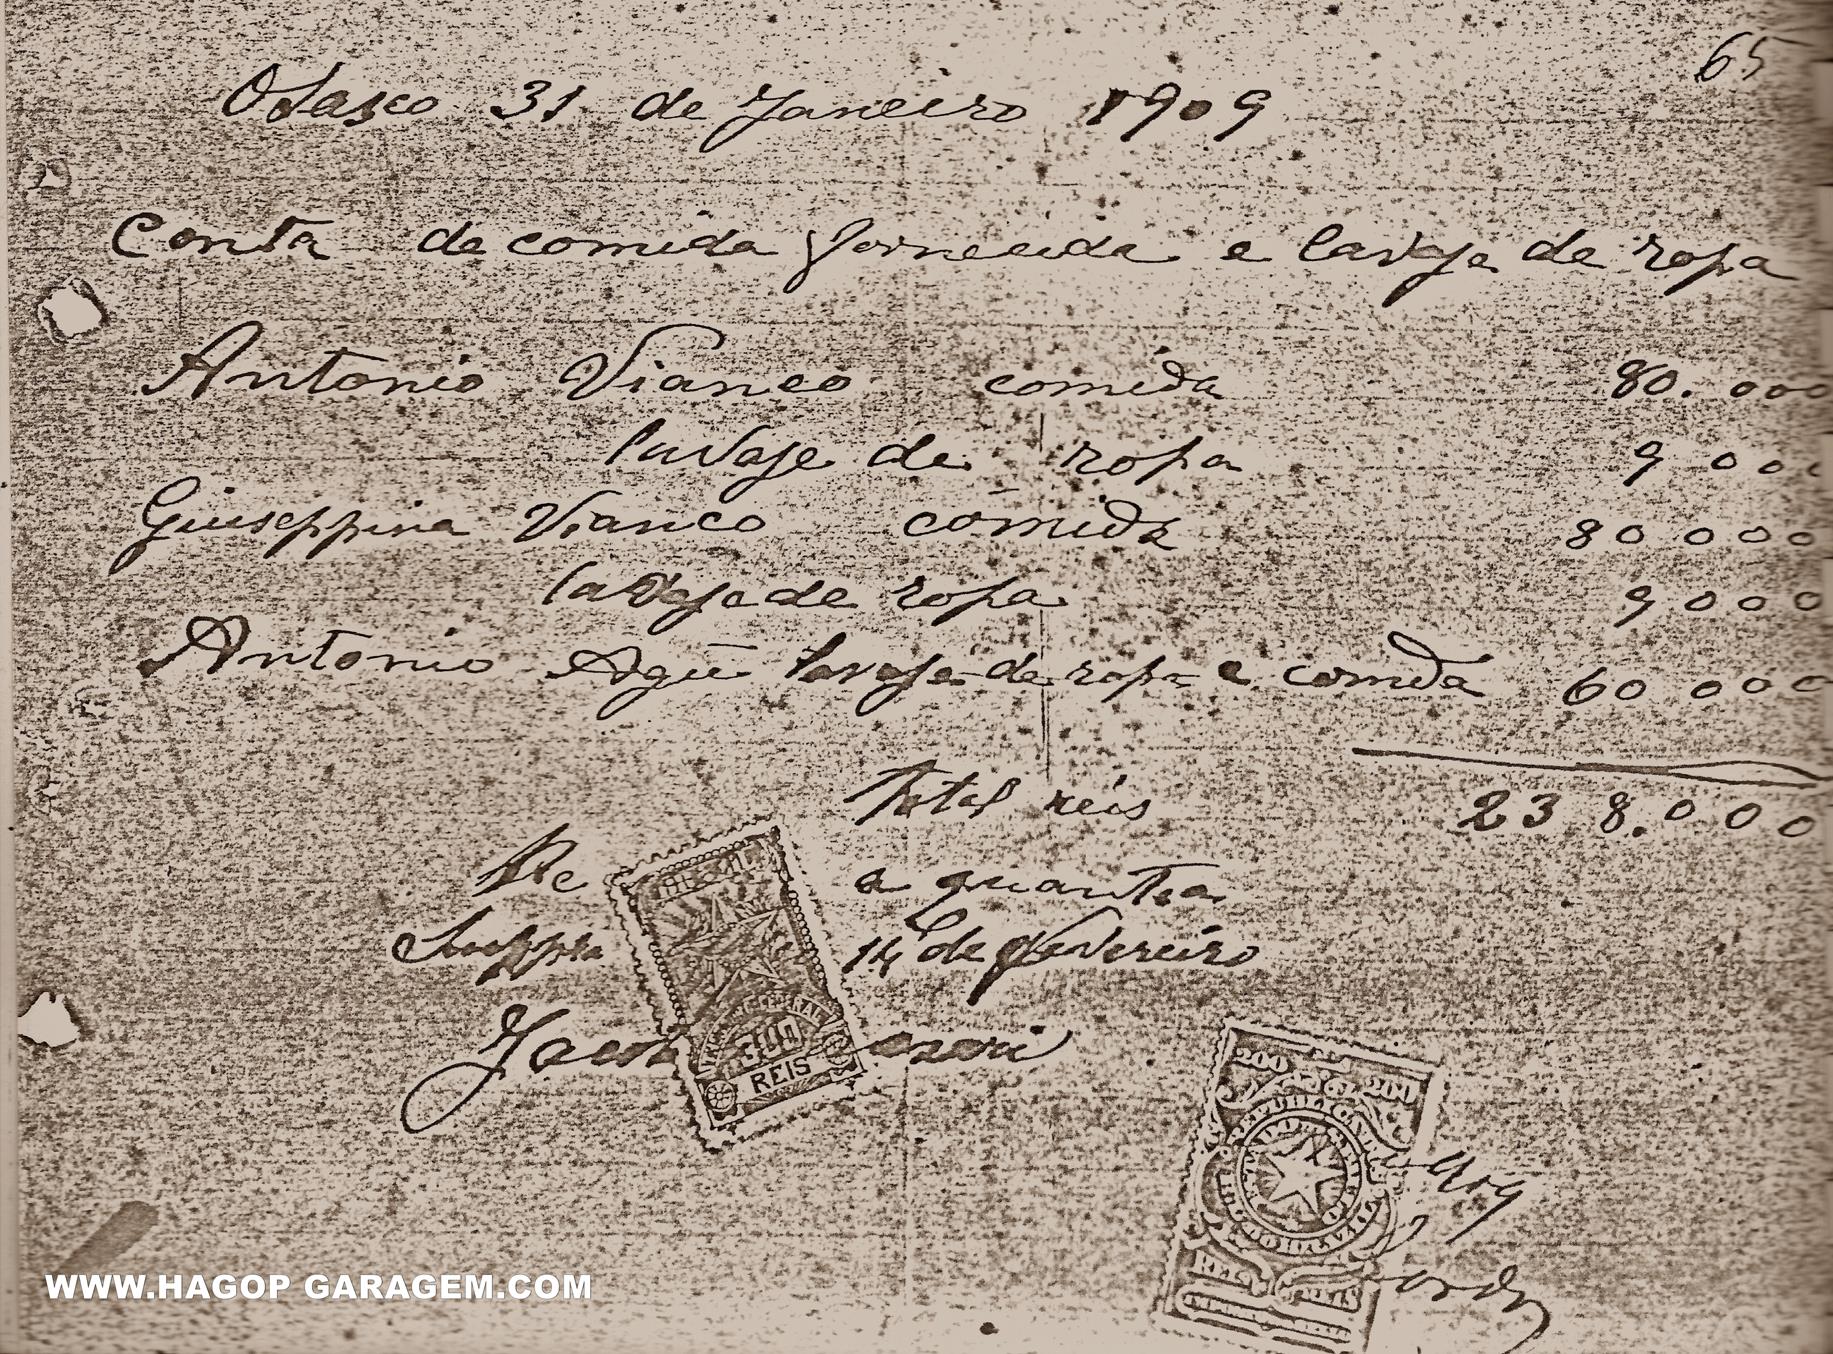 65
Osasco 31 de Janeiro 1909
Conta de comida forneeida e lavaje de ropa
Antonio Vianco comida 80.000
lavaje de ropa 9 000
Giuseppina Vianco comida 80 000
lavaje de ropa 9 000
Antonio Agù lavaje de ropa e comida 60 000
Total reis 238.000
Re a quantia
14 de Fevereiro
BRASIL
300
REIS
200 200
REIS REIS
WWW.HAGOP GARAGEM.COM